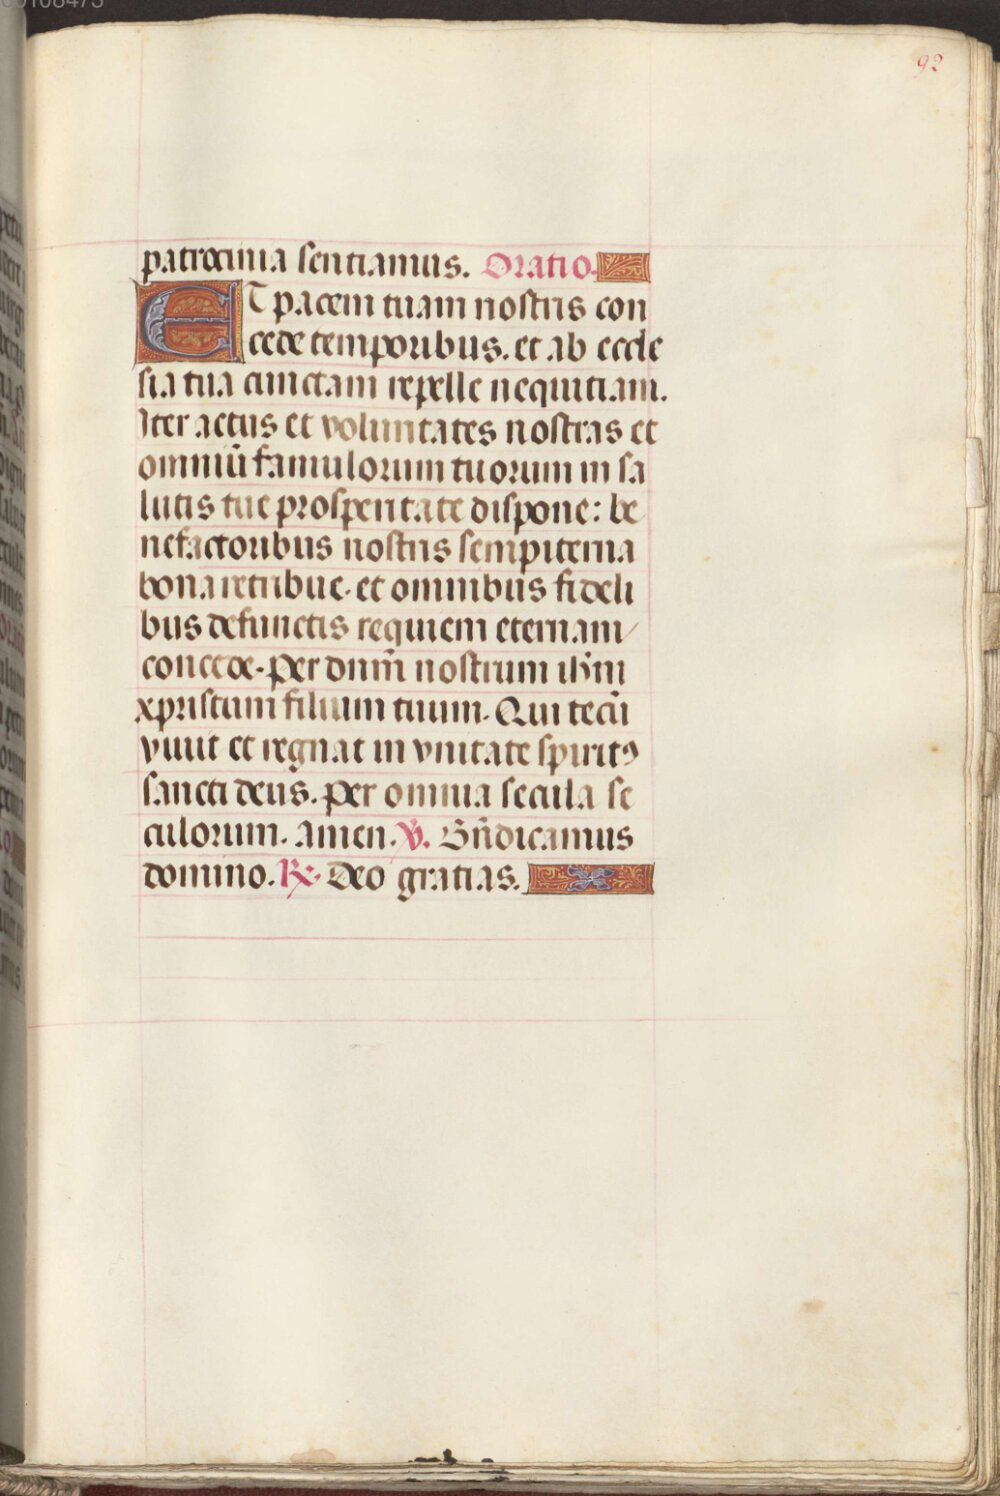 92
patrocinia sentiamus. Oratio.
ET pacem tuam nostris con
cede temporibus. et ab eccle
sia tua cunctam repelle nequitiam.
Iter actus et voluntates nostras et
omniū famulorum tuorum in sa
lutis tue prosperitate dispone: be
nefactoribus nostris sempiterna
bona retribue. et omnibus fideli
bus defunctis requiem eternam
concede. Per dnm̄ nostrum ihm̄
xpristum filium tuum. Qui tecū
viuit et regnat in vnitate spiritꝰ
sancti deus. Per omnia secula se
culorum. Amen. ℣. Bn̄dicamus
domino. ℟. Deo gratias.